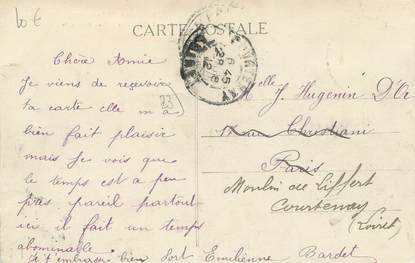 10 €
CARTE POSTALE
Chère Amie
Je viens de recevoir
ta carte elle m'a
bien fait plaisir
mais je vois que
le temps est a peu
près pareil partout
ici il fait un temps
abominable
Je t'embrasse bien fort Emilienne Bardet
23
COURTENAY
6 45
Melle J. Hugenin D'Or
11 Rue Christiani
Paris
Moulin de Liffert
Courtenay
(Loiret)